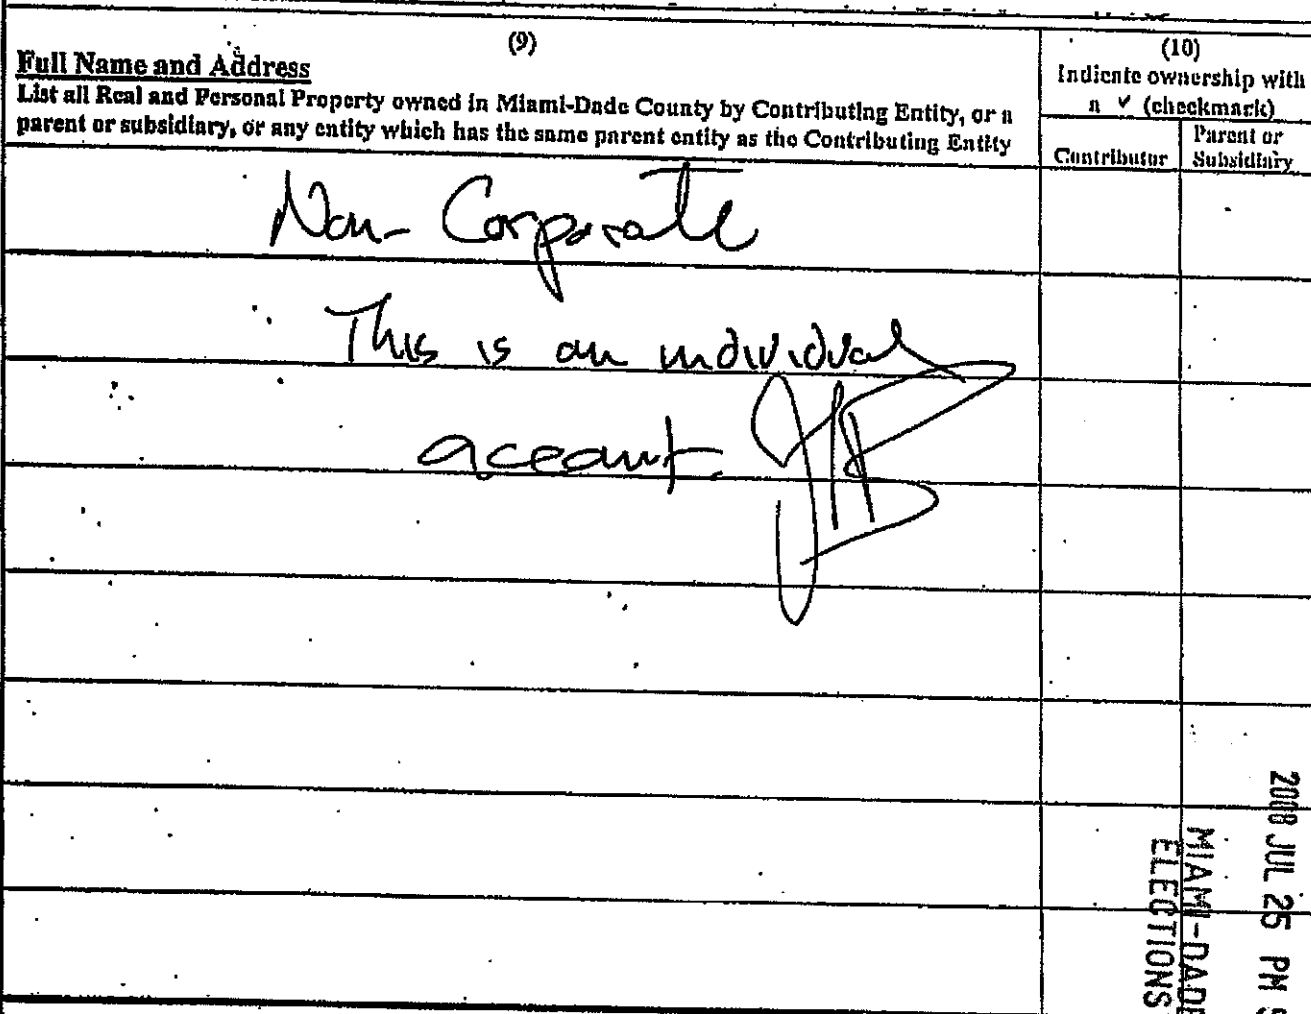 (9)
Full Name and Address
List all Real and Personal Property owned in Miami-Dade County by Contributing Entity, or a
parent or subsidiary, or any entity which has the same parent entity as the Contributing Entity
(10)
Indicate ownership with
a ✓ (checkmark)
Contributor
Parent or
Subsidiary
Non-Corporate
This is an individual
account
2008 JUL 25 PM
MIAMI-DADE
ELECTIONS